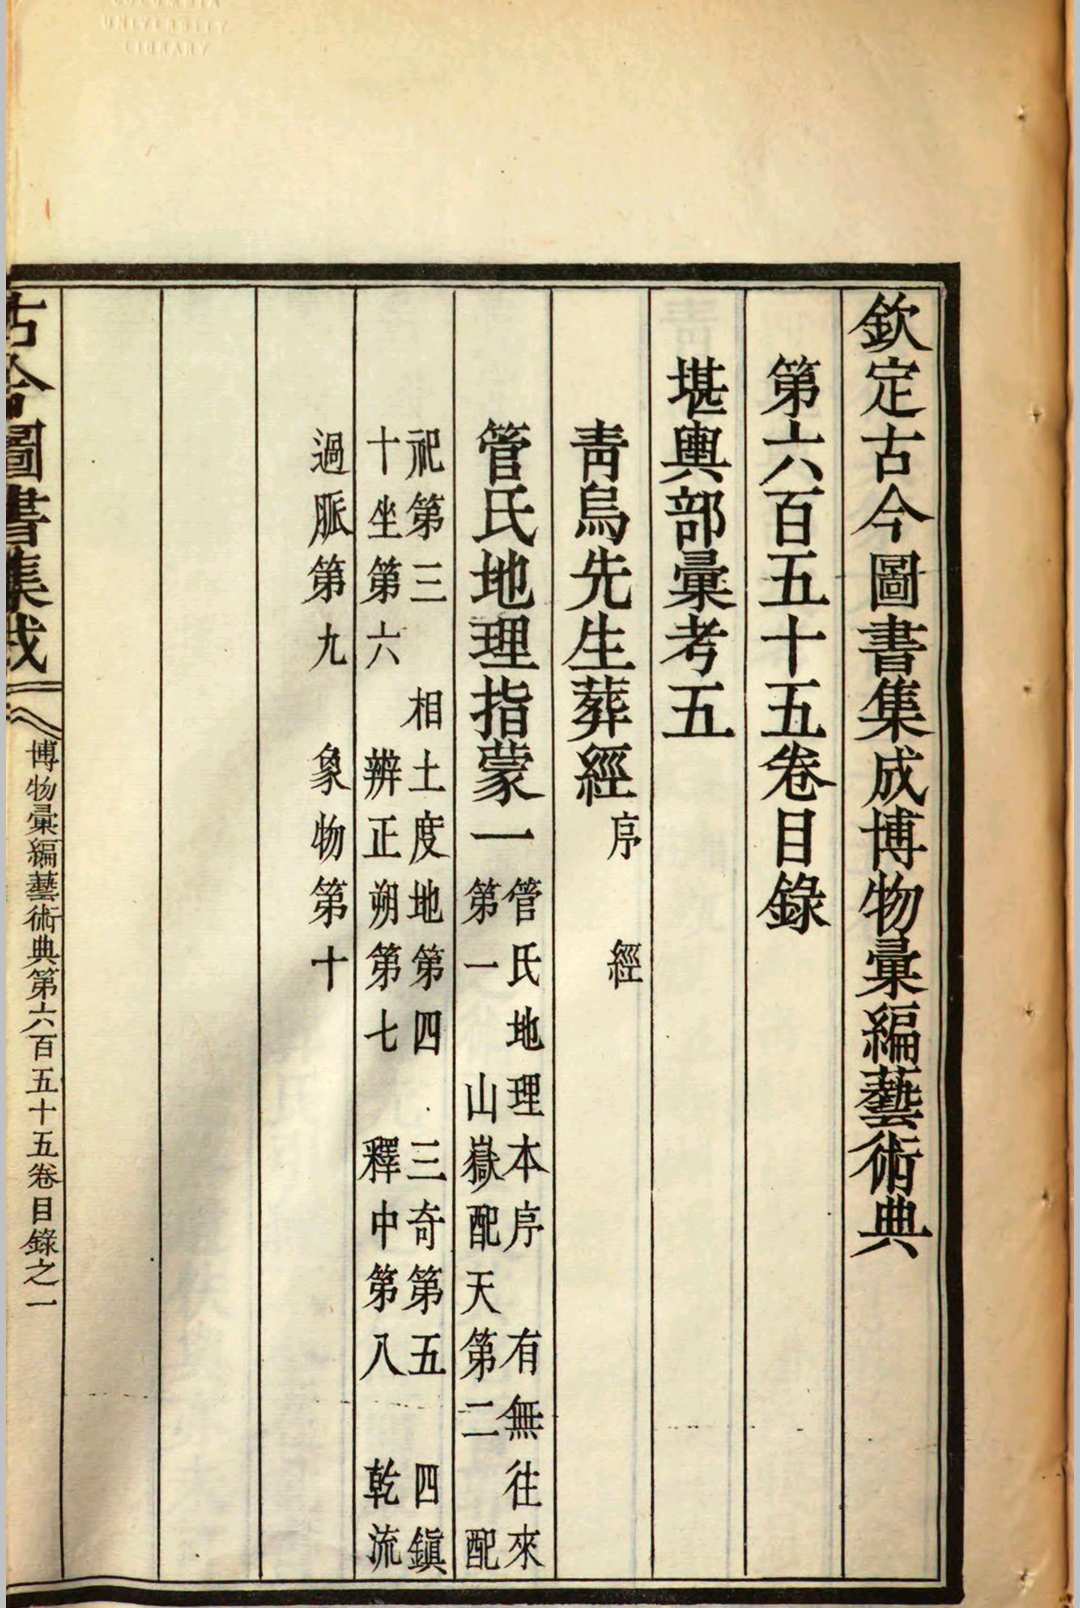 欽定古今圖書集成博物彙編藝術典
第六百五十五卷目錄
堪輿部彙考五
青烏先生葬經 序 經
管氏地理指蒙一 管氏地理本序 有無往來
第一 山嶽配天第二 配
祀第三 相土度地第四 三奇第五 四鎮
十坐第六 辨正朔第七 釋中第八 乾流
過脈第九 象物第十
古今圖書集成 博物彙編藝術典第六百五十五卷目錄之一